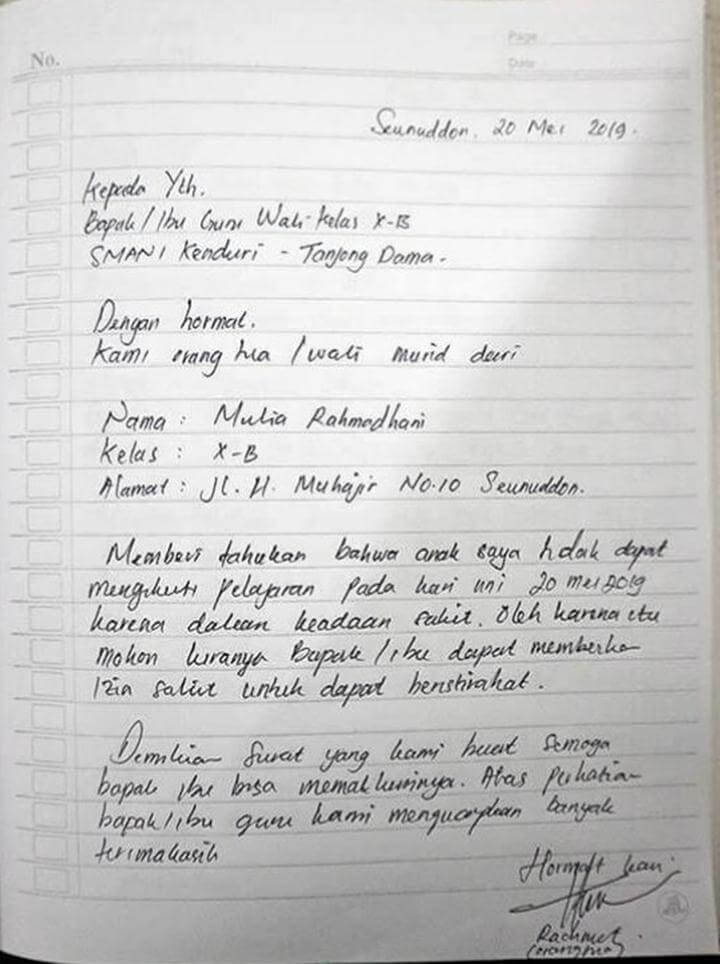 No.
Page
Date
Seunuddon, 20 Mei 2019.
Kepada Yth.
Bapak/Ibu Guru Wali Kelas X-B
SMAN 1 Kenduri - Tanjong Dama.
Dengan hormat.
Kami orang tua / wali murid dari
Nama : Mulia Rahmadhani
Kelas : X-B
Alamat : Jl. H. Muhajir No.10 Seunuddon.
Memberi tahukan bahwa anak saya tidak dapat
mengikuti pelajaran pada hari ini 20 mei 2019
karena dalam keadaan sakit. Oleh karena itu
mohon kiranya Bapak/ibu dapat memberikan
Izin sakit untuk dapat beristirahat.
Demikian surat yang kami buat semoga
bapak ibu bisa memakluminya. Atas perhatian
bapak/ibu guru kami mengucapkan banyak
terimakasih
Hormat kami.
Rachmat.